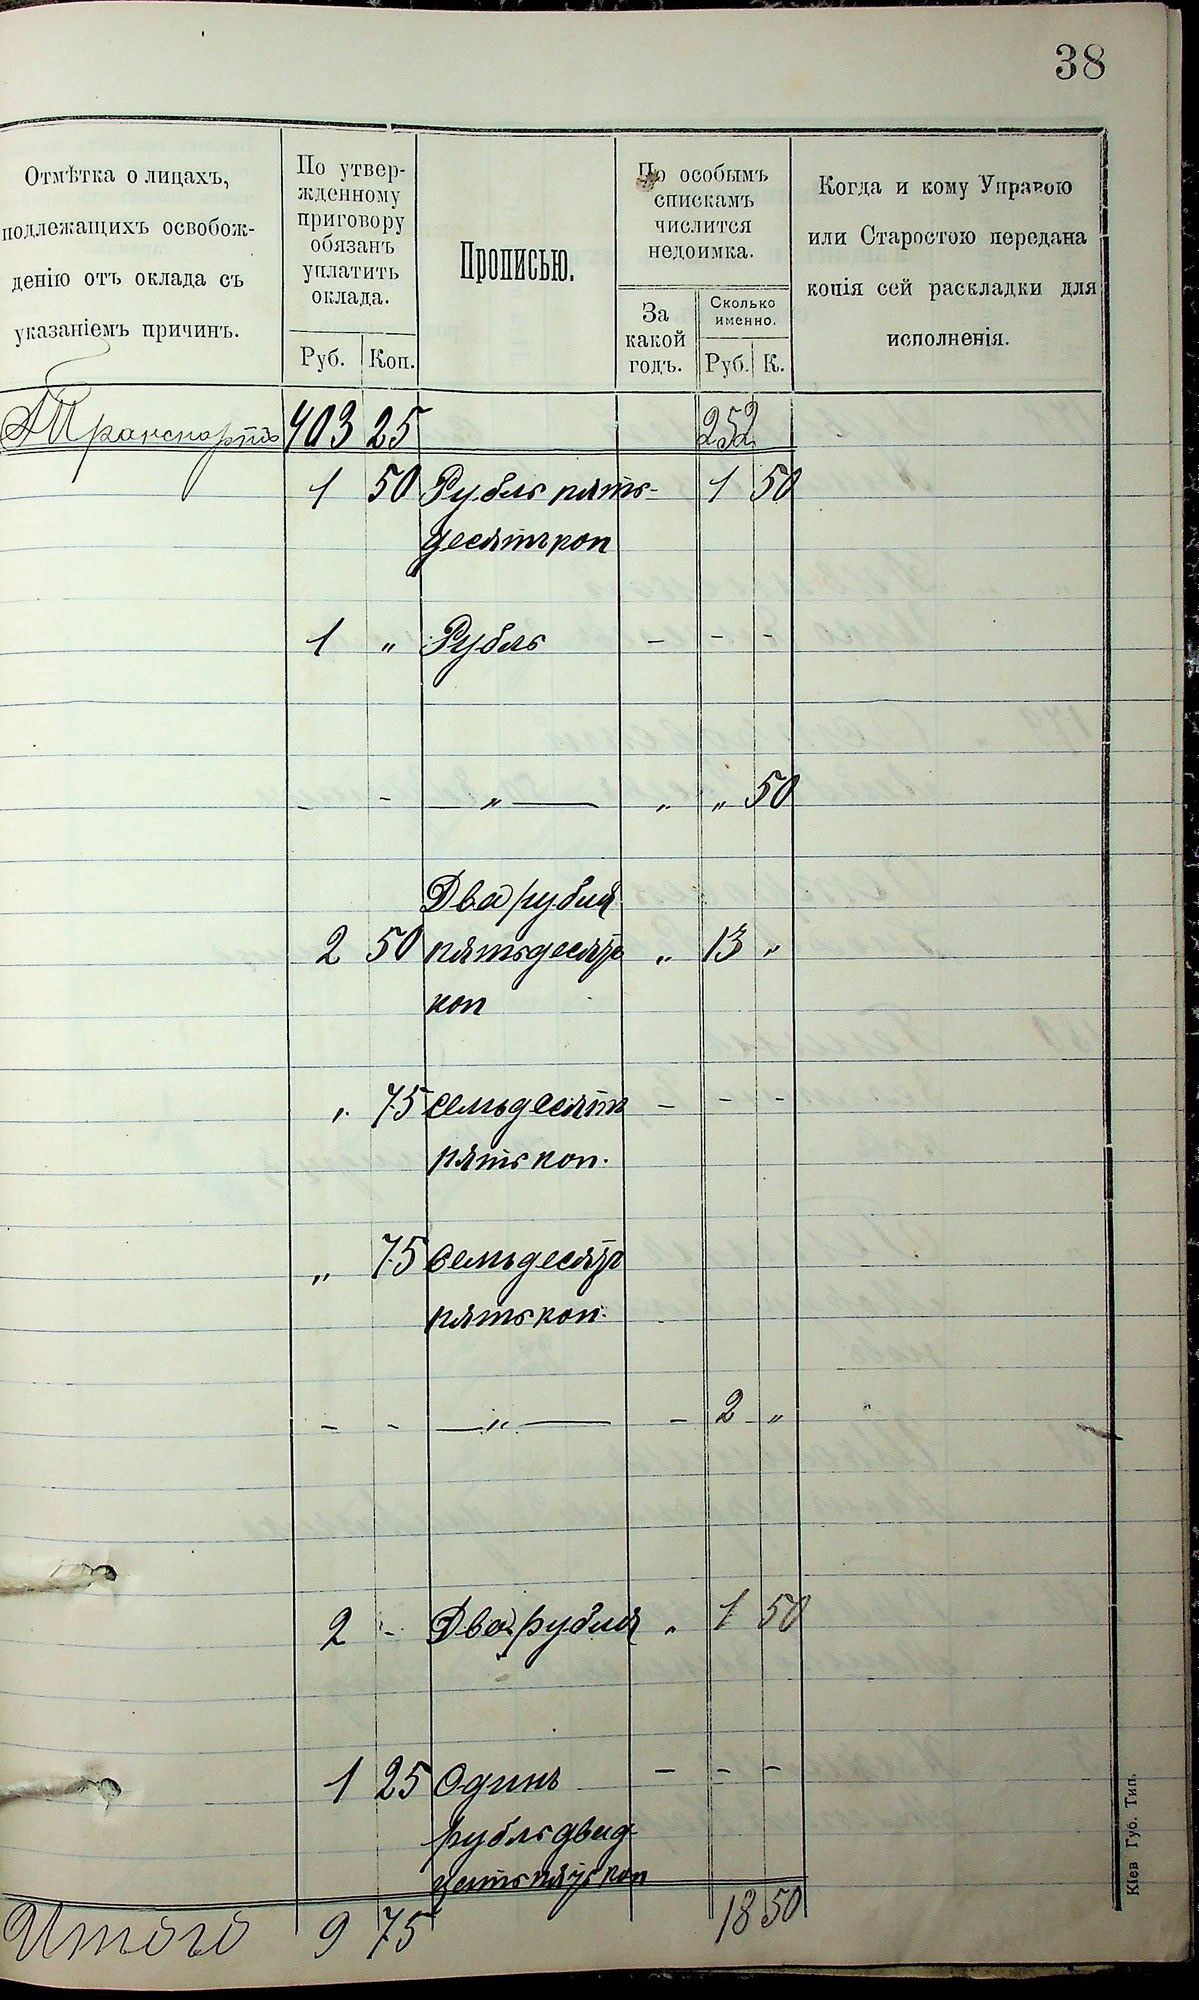 38
Отмѣтка о лицахъ,
подлежащихъ освобож-
денію отъ оклада съ
указаніемъ причинъ.
По утвер-
жденному
приговору
обязанъ
уплатить
оклада.
Руб. Коп.
Прописью.
По особымъ
спискамъ
числится
недоимка.
За
какой
годъ.
Сколько
именно.
Руб. К.
Когда и кому Управою
или Старостою передана
копія сей раскладки для
исполненія.
Транспортъ 403 25 252
1 50 Рубль пять- 1 50
десятъ коп
1 " Рубль - - -
- - — " — " " 50
Два рубля
2 50 пятьдесятъ " 13 "
коп
" 75 семьдесятъ - - -
пять коп.
" 75 семьдесятъ
пять коп.
- - — " — - 2 "
2 - Два рубля " 1 50
1 25 Одинъ - - -
рубль двад-
цать пять коп
Итого 9 75 18 50
Кіев Губ. Тип.